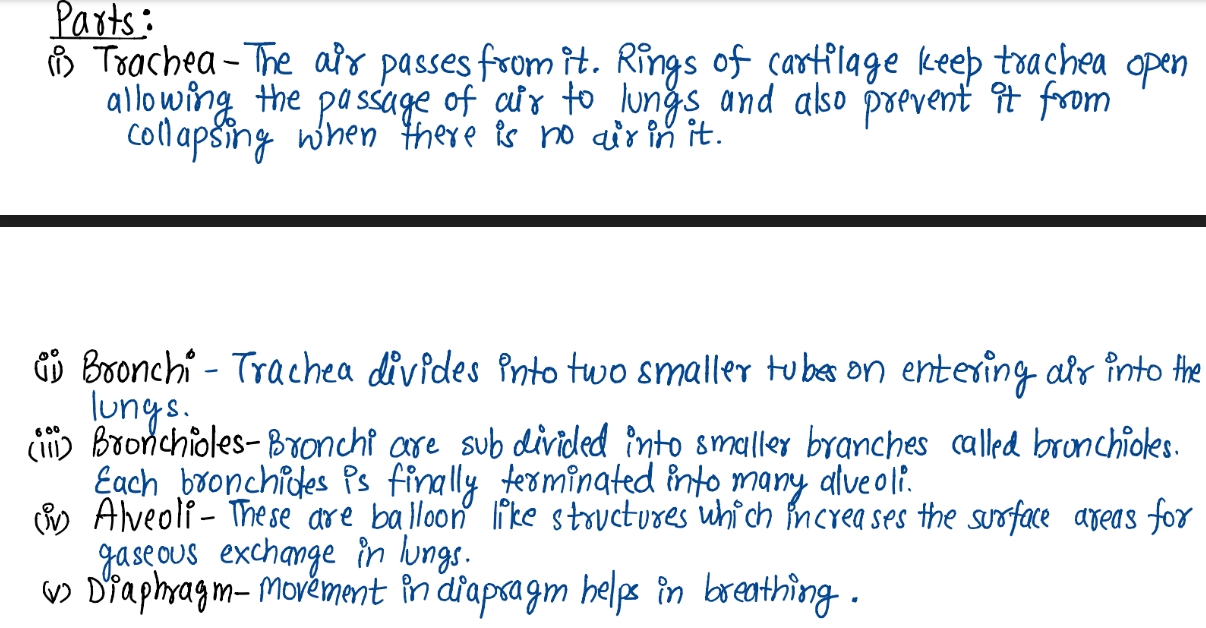 Parts:
(i) Trachea - The air passes from it. Rings of cartilage keep trachea open
allowing the passage of air to lungs and also prevent it from
collapsing when there is no air in it.
(ii) Bronchi - Trachea divides into two smaller tubes on entering air into the
lungs.
(iii) Bronchioles - Bronchi are sub divided into smaller branches called bronchioles.
Each bronchioles is finally terminated into many alveoli.
(iv) Alveoli - These are balloon like structures which increases the surface areas for
gaseous exchange in lungs.
(v) Diaphragm - Movement in diapragm helps in breathing.